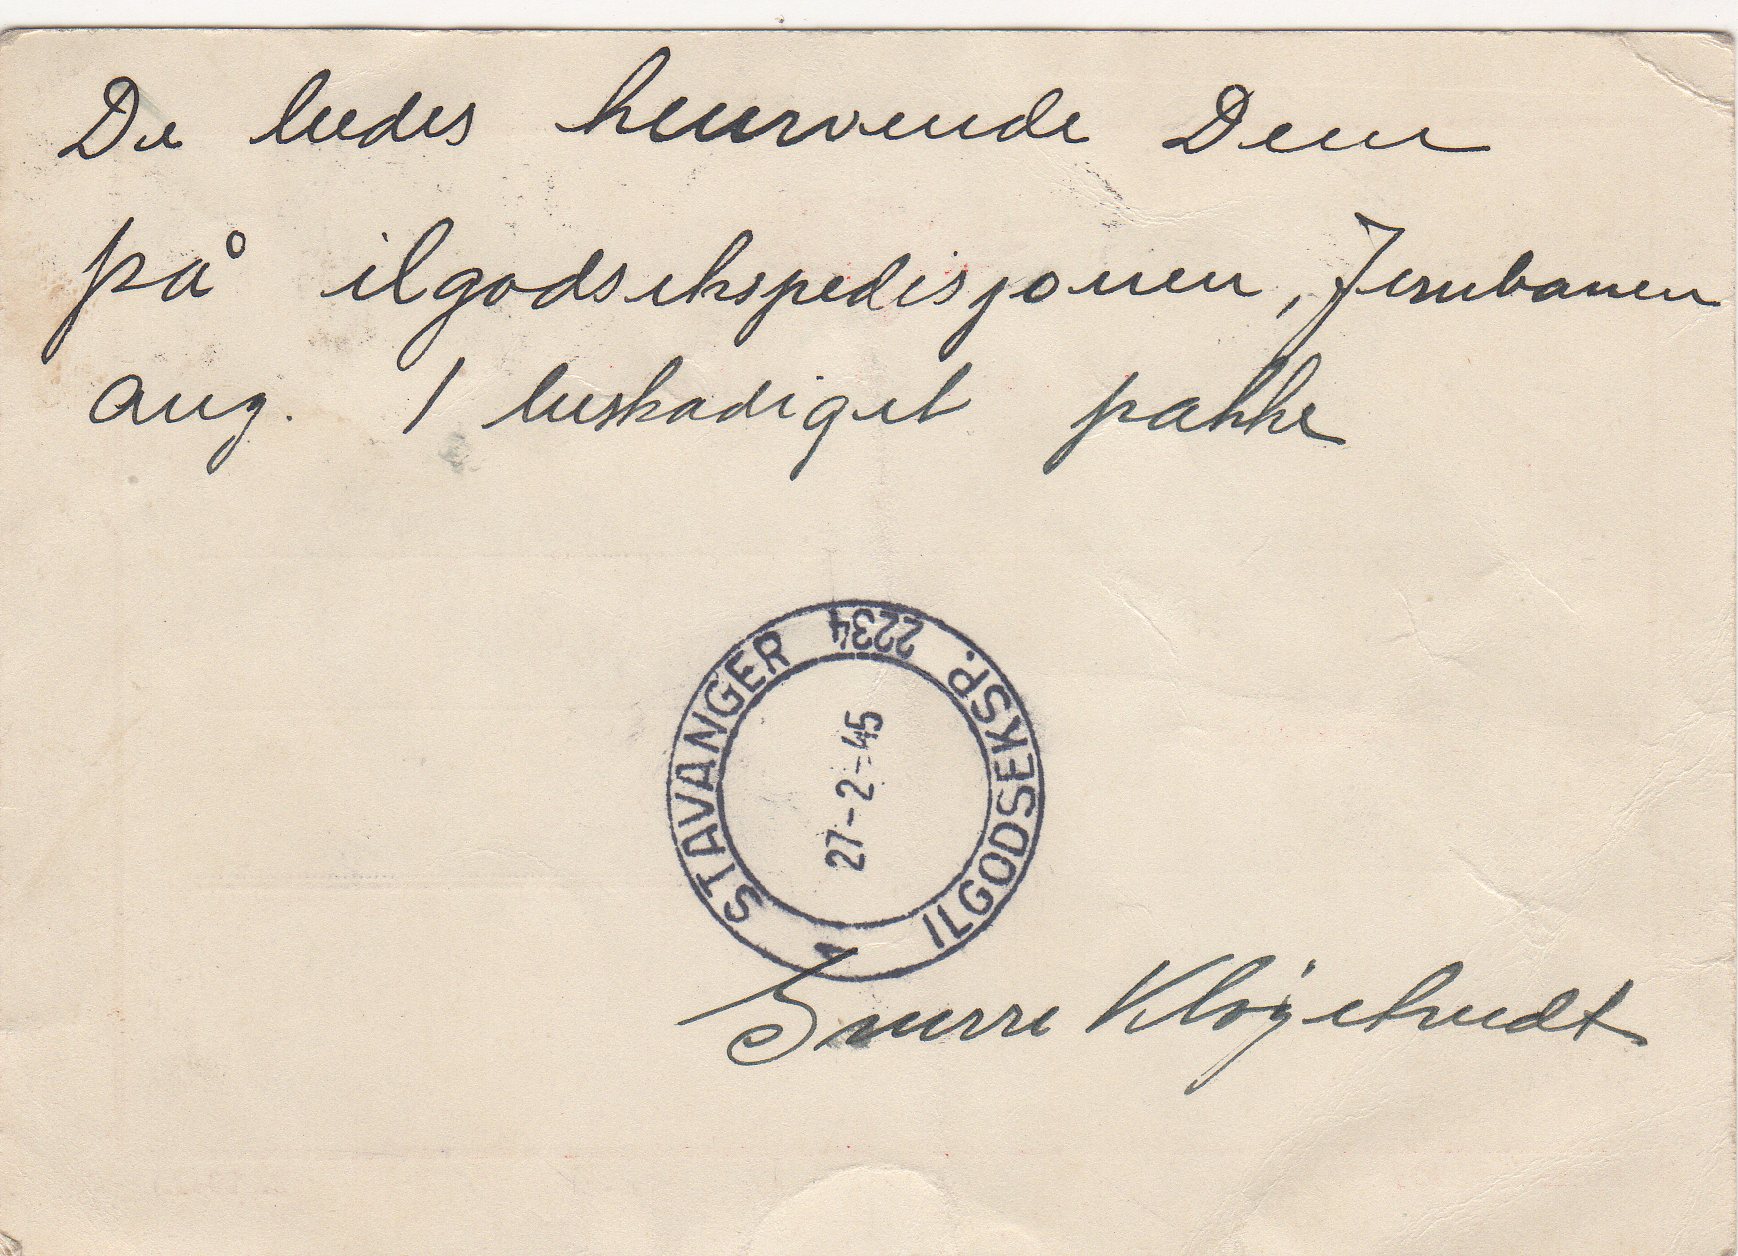 De bedes henvende Dem
på ilgodsekspedisjonen, Jernbanen
ang. 1 beskadiget pakke
STAVANGER 2234 ILGODSEKSP.
27-2-45
1
Snorre